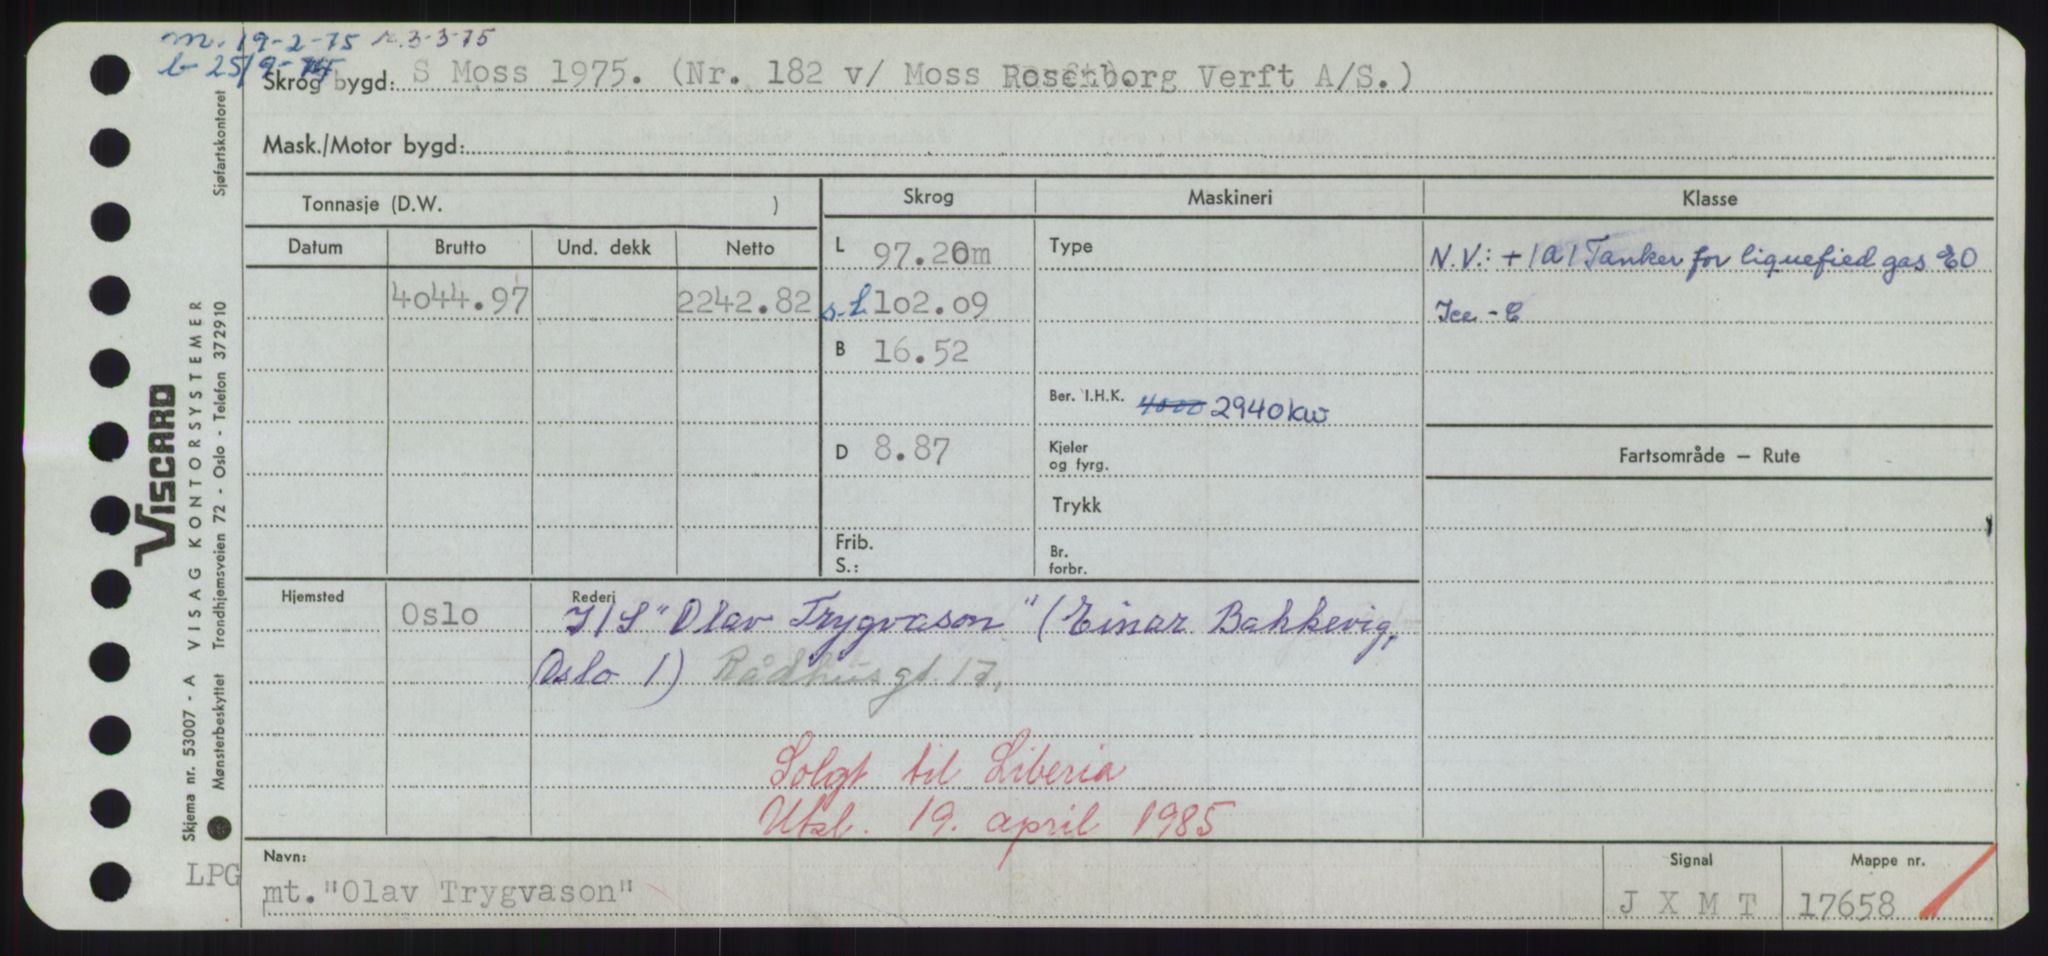 m. 19-2-75 r. 3-3-75
b 25/9-74
Skrog bygd: S Moss 1975. (Nr. 182 v/ Moss Rosenborg Verft A/S.)
Mask./Motor bygd:
Tonnasje (D.W. )
Skrog Maskineri Klasse
Datum Brutto Und. dekk Netto
L 97.20m Type N.V.: +1A1 Tanker for liquefied gas EO
4044.97 2242.82 s.L 102.09 Ice - C
B 16.52
Ber. I.H.K. 4000 2940 kw
D 8.87 Kjeler og fyrg.
Fartsområde – Rute
Trykk
Frib. S.: Br. forbr.
Hjemsted Oslo Rederi I/S "Olav Trygvason" (Einar Bakkevig,
Oslo 1) Rådhusgt 17,
Solgt til Liberia
Utsl. 19. april 1985
Navn: Signal Mappe nr.
LPG mt. "Olav Trygvason" J X M T 17658
Sjøfartskontoret
VISCARD
VISAG KONTORSYSTEMER
Trondhjemsveien 72 - Oslo - Telefon 372910
Skjema nr. 53007 - A
Mønsterbeskyttet